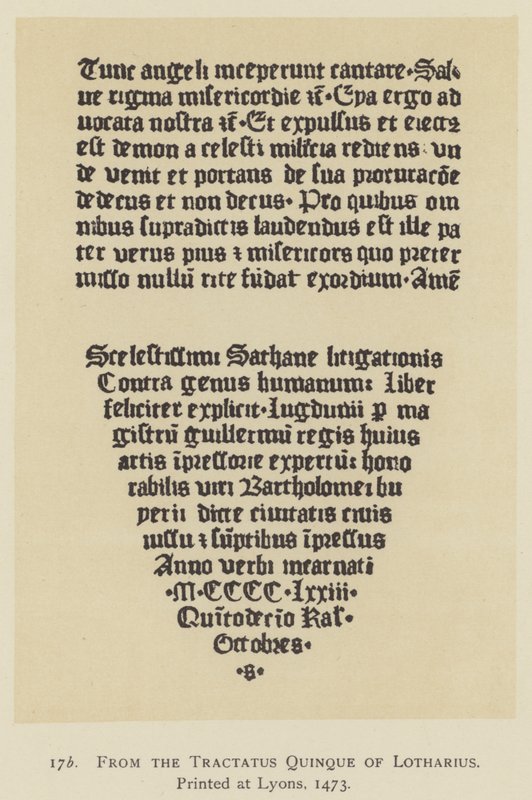 Tunc angeli inceperunt cantare·Sal⸗
ue regina misericordie ⁊c̄·Eya ergo ad
uocata nostra ⁊c̄·Et expulsus et eiectꝰ
est demon a celesti milicia rediens· vn
de venit et portans de sua procuracōe
dedecus et non decus· Pro quibus om
nibus supradictis laudendus est ille pa
ter verus pius ⁊ misericors quo preter
misso nullū rite fūdat exordium·Amē
Scelestissimi Sathane litigationis
Contra genus humanum: liber
feliciter explicit·lugdunii ꝑ ma
gistrū guillermū regis huius
artis īpressorie expertū: hono
rabilis viri Bartholomei bu
yerii dicte ciuitatis ciuis
iussu ⁊ sūptibus īpressus
Anno verbi incarnati
·M·CCCC·lxxiii·
Quītodecīo Kal̄·
Octobres·
·s·
17b. FROM THE TRACTATUS QUINQUE OF LOTHARIUS.
Printed at Lyons, 1473.